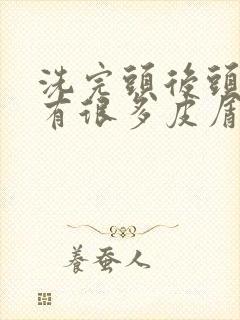 洗完頭後頭
有很多皮屑
養蚕人